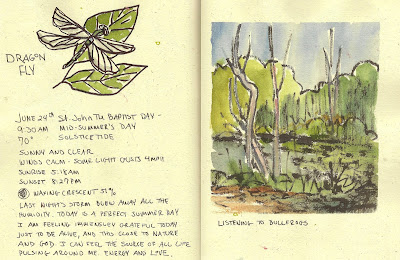 DRAGON
FLY
JUNE 24th St. John The BAPTIST DAY -
9:30AM MID-SUMMER'S DAY
70° SOLSTICE TIDE
SUNNY AND CLEAR
WINDS CALM - SOME LIGHT GUSTS 4MPH
SUNRISE 5:18AM
SUNSET 8:27PM
WAXING CRESCENT 51%
LAST NIGHT'S STORM BLEW AWAY ALL THE
HUMIDITY. TODAY IS A PERFECT SUMMER DAY
I AM FEELING IMMENSELY GRATEFUL TODAY
JUST TO BE ALIVE, AND THIS CLOSE TO NATURE
AND GOD. I CAN FEEL THE SOURCE OF ALL LIFE
PULSING AROUND ME. ENERGY AND LOVE.
LISTENING TO BULLFROGS.